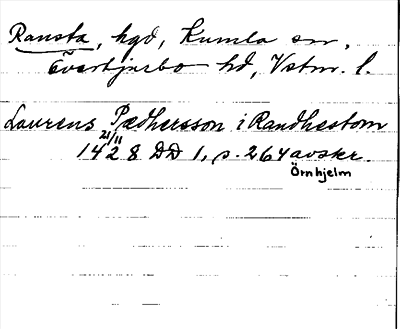 Ransta, hgd, Kumla sn,
Övertjurbo hd, Vstm. l.
Laurens Pædhersson i Randhestom
21/11
1428 DD 1, s. 264 avskr.
Örnhjelm